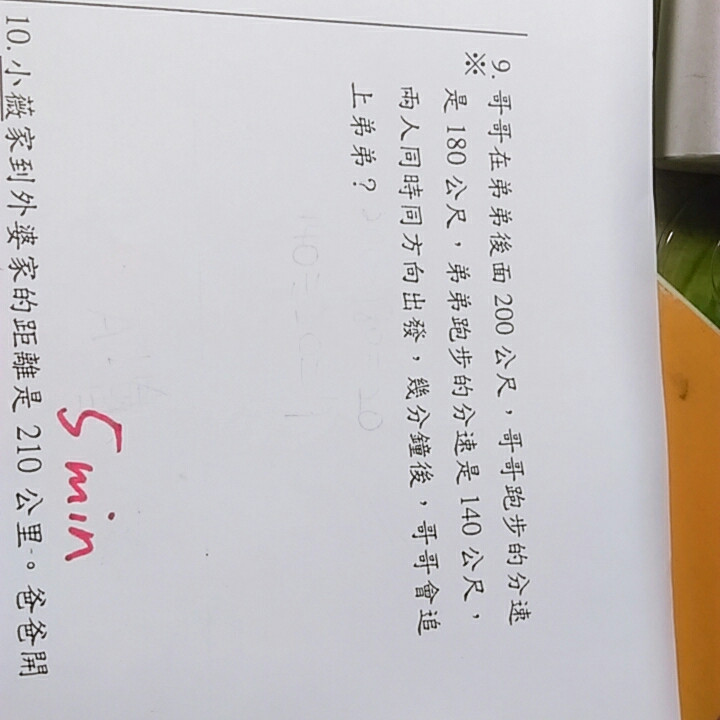 9. 哥哥在弟弟後面 200 公尺，哥哥跑步的分速
※ 是 180 公尺，弟弟跑步的分速是 140 公尺，
兩人同時同方向出發，幾分鐘後，哥哥會追
上弟弟？
5 min
10. 小薇家到外婆家的距離是 210 公里。爸爸開